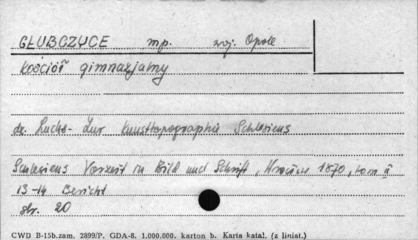 GŁUBCZYCE mp. woj. Opole
kościół gimnazjalny
dr. Luchs - Zur Kunsttopographie Schlesiens
Schlesiens Vorzeit in Bild und Schrift, Wrocław 1870, tom II
13-14 Bericht
str. 20
CWD B-15b.zam. 2899/P. GDA-8. 1.000.000. karton b. Karta katal. (z liniat.)